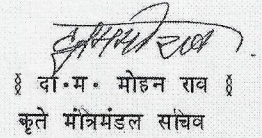 ॥ दा.म. मोहन राव ॥
कृते मंत्रिमंडल सचिव